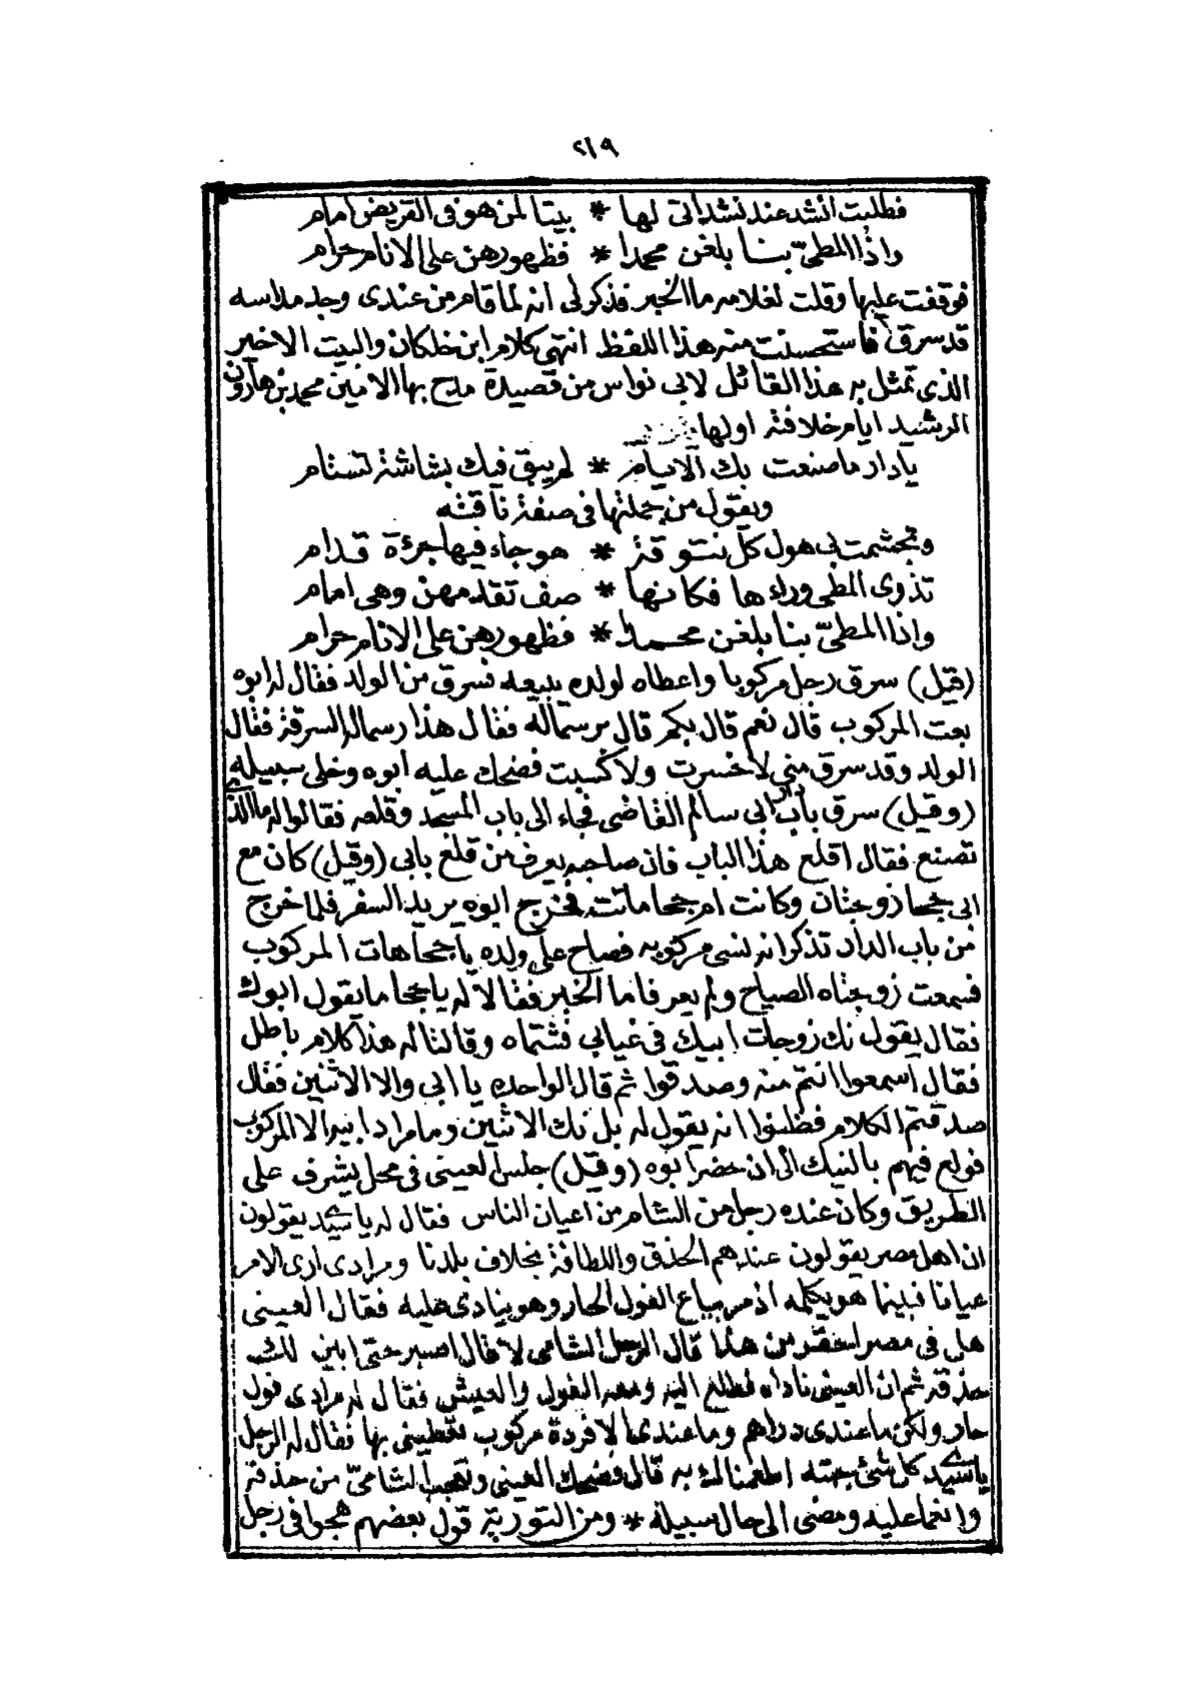 ٢١٩
فطلبت انشد عند نشدانى لها * بيتا لمن هو فى القريض امام
واذا المطىّ بنا بلغن محمدا * فظهورهن على الانام حرام
فوقفت عليها وقلت لغلامه ما الخبر فذكر لى انه لما قام من عندى وجد مداسه
قد سرق فاستحسنت منه هذا اللفظ انتهى كلام ابن خلكان والبيت الاخير
الذى تمثل به هذا القائل لابى نواس من قصيدة مدح بها الامين محمد بن هارون
الرشيد ايام خلافته اولها
يا دار ما صنعت بك الايام * لم يبق فيك بشاشة تستام
ويقول من جملتها فى صفة ناقته
وتجشمت بى هول كل تنوقة * هوجاء فيها جرءة قدام
تذوى المطى وراءها فكانها * صف تقدمهن وهى امام
واذا المطىّ بنا بلغن محمدا * فظهورهن على الانام حرام
(قيل) سرق رجل مركوبا واعطاه لولده يبيعه فسرق من الولد فقال له ابوه
بعت المركوب قال نعم قال بكم قال برسماله فقال هذا رسمال السرقة فقال
الولد وقد سرق منى لا خسرت ولا كسبت فضحك عليه ابوه وخلى سبيله
(وقيل) سرق باب دار ابى سالم القاضى فجاء الى باب المسجد وقلعه فقالوا له ما الذى
تصنع فقال اقلع هذا الباب فان صاحبه يعرف من قلع بابى (وقيل) كان مع
ابى جحا زوجتان وكانت ام جحا ماتت فخرج ابوه يريد السفر فلما خرج
من باب الدار تذكر انه نسى مركوبه فصاح على ولده يا جحا هات المركوب
فسمعت زوجتاه الصياح ولم يعرفا ما الخبر فقالا له يا جحا ما يقول ابوك
فقال يقول نك زوجات ابيك فى غيابى فشتماه وقالتا له هذا كلام باطل
فقال اسمعوا انتم منه وصدقوا ثم قال الواحده يا ابى والا الاثنين فقال
صدقتم الكلام فظنوا انه يقول له بل نك الاثنين وما مراد ابيه الا المركوب
فولع فيهم بالنيك الى ان حضر ابوه (وقيل) جلس العينى فى محل يشرف على
الطريق وكان عنده رجل من الشام من اعيان الناس فقال له يا سيد يقولون
ان اهل مصر يقولون عندهم الحذق واللطافة بخلاف بلدنا ومرادى ارى الامر
عيانا فبينما هو يكلمه اذ مر بياع الفول الحار وهو ينادى عليه فقال العينى
هل فى مصر احقر من هذا قال الرجل الشامى لا قال اصبر حتى ابين لك
حذقه ثم ان العينى ناداه فطلع اليه ومعه الفول والعيش فقال له مرادى فول
حار ولكن ما عندى دراهم وما عندى الا فردة مركوب تعطينى بها فقال له الرجل
يا سيد كل شئ جبته اطعمناك به قال فضحك العينى وتعجب الشامى من حذقه
وانعما عليه ومضى الى حال سبيله * ومن التورية قول بعضهم هجوا فى رجل